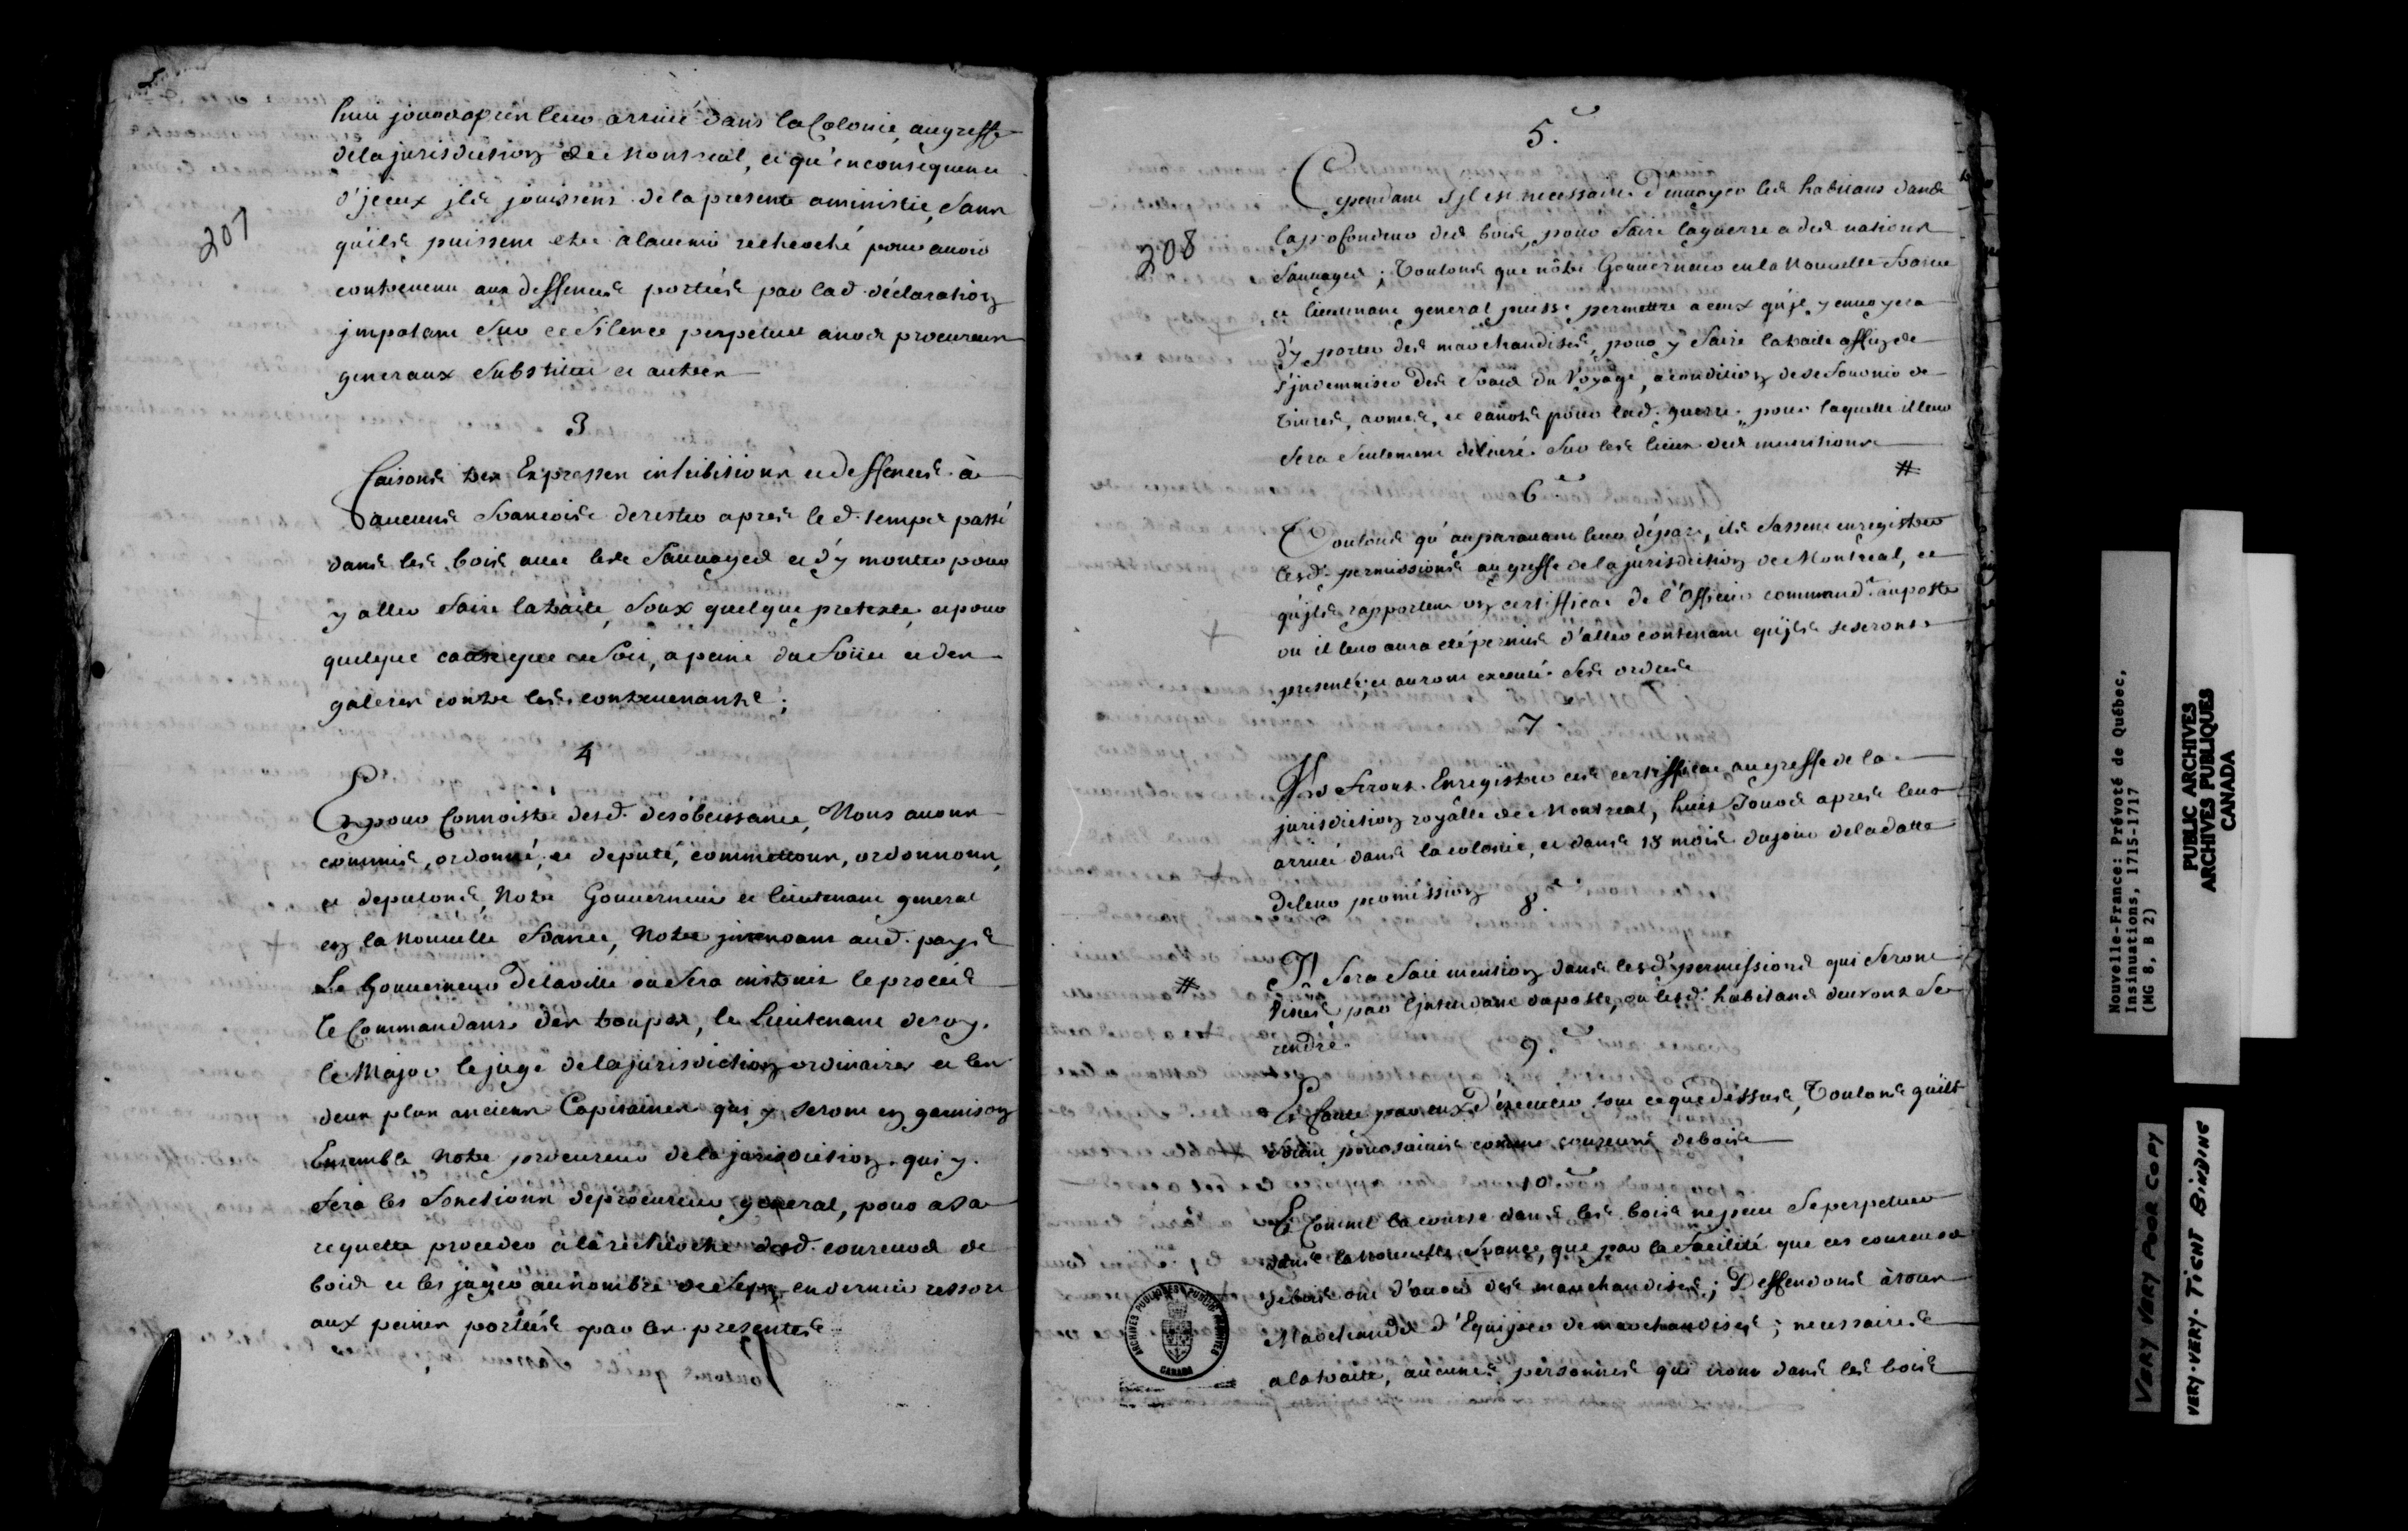 207
huit jours aprés leur arrivé dans la Colonie, au greffe
de la jurisdiction de Montreal, et qu'en consequence
d'jceux jls jouissent de la presente aministie, sans
qu'ils puissent etre alavenir recherché pour avoir
contrevenu aux deffences portées par lad. déclaration
jmposant sur ce silence perpetuel a nos procureurs
generaux substitut et autres
3
Faisons tres Expresses inhibitions et deffences à
aucuns francois de rester apres led. temps passé
dans les bois avec les sauvages et d'y monter pour
y aller faire la traite, soux quelque pretexte, et pour
quelque cause que ce soit, a peine du foüet et des
galeres contre les contrevenants;
4
Et pour Connoistre desd. desobeissance, Nous avons
commis, ordonné, et deputé, commettons, ordonnons,
et deputons, Notre Gouverneur et lieutenant general
en la nouvelle france, Notre jntendant aud. pays
Le Gouverneur de la ville ou sera instruit le procés
le Commandant des troupes, le Lieutenant de roy,
le Major le juge de la jurisdiction ordinaires et les
deux plus anciens Capitaines qui y seront en garnison
Ensemble Notre procureur de la jurisdiction qui y
fera les fonctions de procureur general, pour a sa
requette proceder a la recherche desd. coureurs de
bois et les juger au nombre de sept en dernier ressort
aux peines portées par les presentes
208
5.e
Cependant s'jl est necessaire d'envoyer les habitans dans
la profondeur des bois pour faire la guerre a des nations
sauvages; Voulons que nôtre Gouverneur en la Nouvelle france
et lieutenant general puisse permettre a ceux qu'jl y envoyera
d'y porter des marchandises, pour y faire la traite affin de
s'jndemniser des fraix du voyage, a condition de se fournir de
vivres, armes, et canots pour lad. guerre, pour laquelle il leur
sera seulement delivré sur les lieux des munitions
#
6.e
Voulons qu'auparavant leur départ, ils fassent enregistrer
lesd. permissions au greffe de la jurisdiction de Montreal, et
qu'jls rapportent un certifficat de l'officier command.t au poste
ou il leur aura eté permis d'aller contenant qu'jls se seront
presenté, et auront executé ses ordres
7
Jls feront Enregistrer ces certifficat au greffe de la
jurisdiction royalle de Montreal, huit Jours apres leur
arrivé dans la colonie, et dans 18 mois du jour de la datte
de leur permission
8.e
#
Jl sera fait mention dans lesd. permissions qui seront
visées par l'jntendant du poste, ou lesd. habitans devront se
rendre.
9.e
Et faute par eux d'executer tout ce que dessus, Voulons quils
soient poursuivis comme coureurs de bois
10.e
Et Comme la course dans les bois ne peut se perpetuer
dans la nouvelle france, que par la facilité que ces coureurs
de bois ont d'avoir des marchandises; Deffendons à tous
Marchands d'Equiper de marchandises; necessaires
a la traite, aucunes personnes qui iront dans les bois
ARCHIVES PUBLIQUES PUBLIC ARCHIVES
CANADA
Nouvelle-France: Prévoté de Québec,
Insinuations, 1715-1717
(MG 8, B 2)
PUBLIC ARCHIVES
ARCHIVES PUBLIQUES
CANADA
VERY VERY POOR COPY
VERY-VERY-TIGHT BINDING